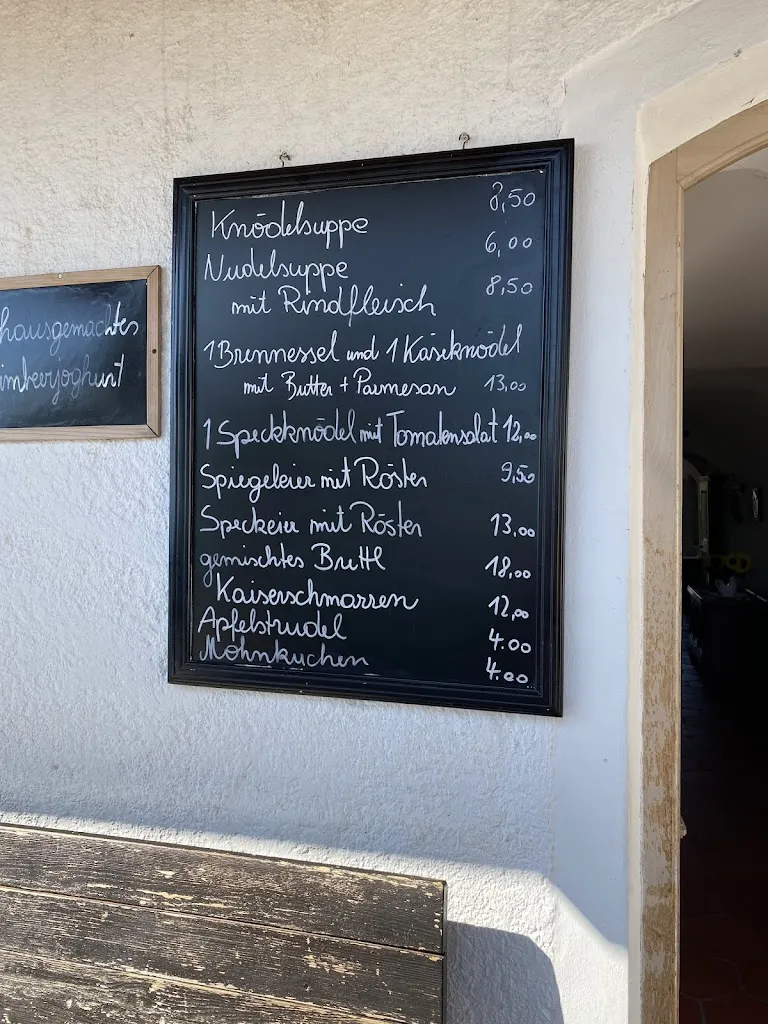 hausgemachtes
imbeerjoghurt
Knödelsuppe 8,50
Nudelsuppe 6,00
mit Rindfleisch 8,50
1 Brennessel und 1 Käseknödel
mit Butter + Parmesan 13,00
1 Speckknödel mit Tomatensalat 12,00
Spiegeleier mit Röster 9,50
Speckeier mit Röster 13,00
gemischtes Brettl 18,00
Kaiserschmarren 12,00
Apfelstrudel 4.00
Mohnkuchen 4.00